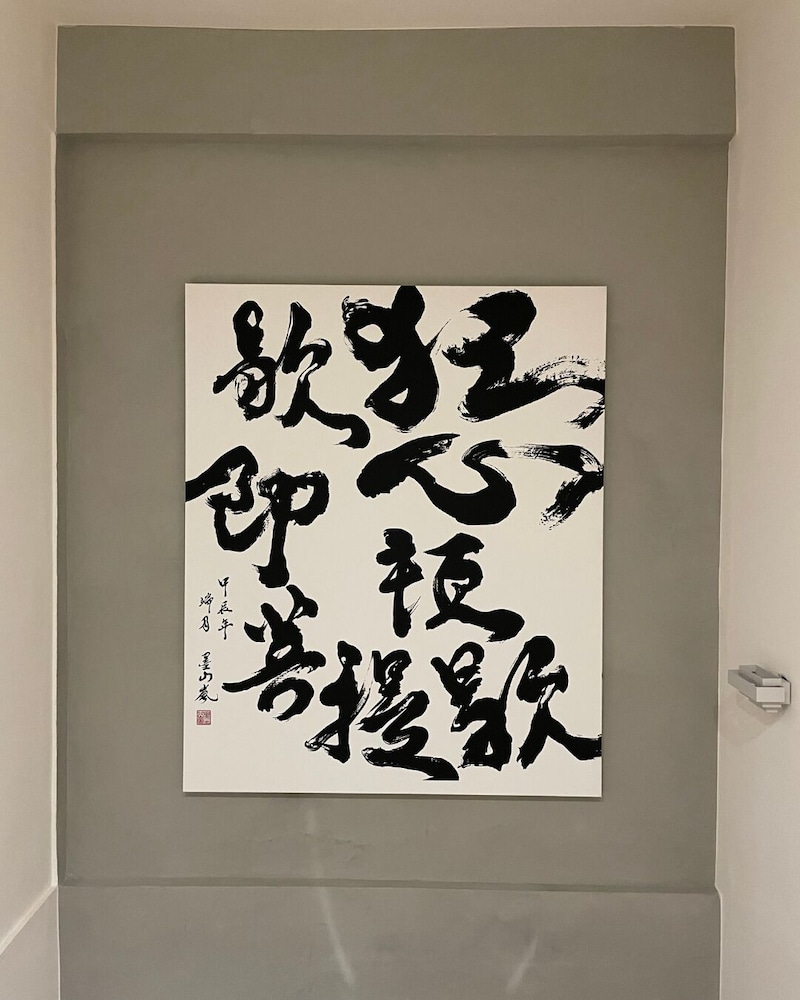 狂心頓歇
歇即菩提
甲辰年
月
墨山嵐